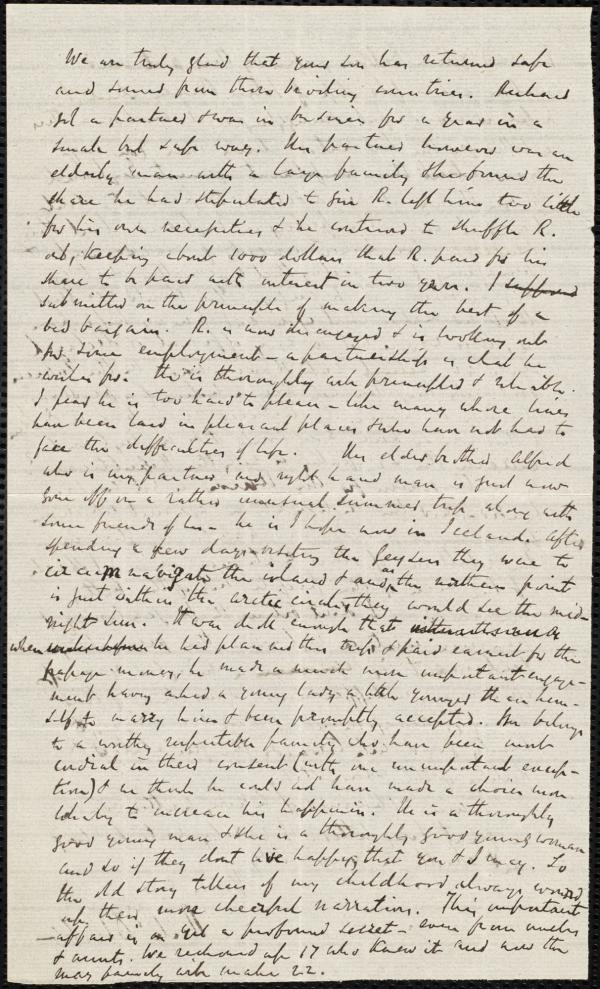 We are truly glad that your son has returned safe
and sound from those bewitching countries. Richard
got a partner & was in business for a year in a
small but safe way. His partner however was an
elderly man with a large family & he found the
share he had stipulated to give R. left him too little
for his own necessities & he contrived to shuffle R.
out, keeping about 1000 dollars that R. paid for his
share to be paid with interest in two years. I suffered
submitted on the principle of making the best of a
bad bargain. R. is now disengaged & is looking out
for some employment – a partnership is what he
wishes for. He is thoroughly well principled & reliable.
I fear he is too hard to please – like many whose lines
have been laid in pleasant places & who have not had to
face the difficulties of life. His elder brother Alfred
who is my partner and right hand man is just now
gone off on a rather unusual summer trip along with
some friends of his – he is I hope now in Iceland. After
spending a few days visiting the Geysers they were to
circumnavigate the island & as the northern point
is just within the arctic circle they would see the mid-
night sun. It was droll enough that
when he had planned this trip & paid earnest for the
passage money, he made a much more important engage-
ment having asked a young lady a little younger than him-
self to marry him & been promptly accepted. She belongs
to a worthy reputable family who have been most
cordial in their consent (with one unimportant excep-
tion) & we think he could not have made a choice more
likely to increase his happiness. He is a thoroughly
good young man & she is a thoroughly good young woman
and so if they dont live happy, that you & I may. So
the old story tellers of my childhood always wound
up their more cheerful narratives. This important
affair is as yet a profound secret – even from uncles
& aunts. We reckoned up 17 who knew it and now the
May family will make 22.